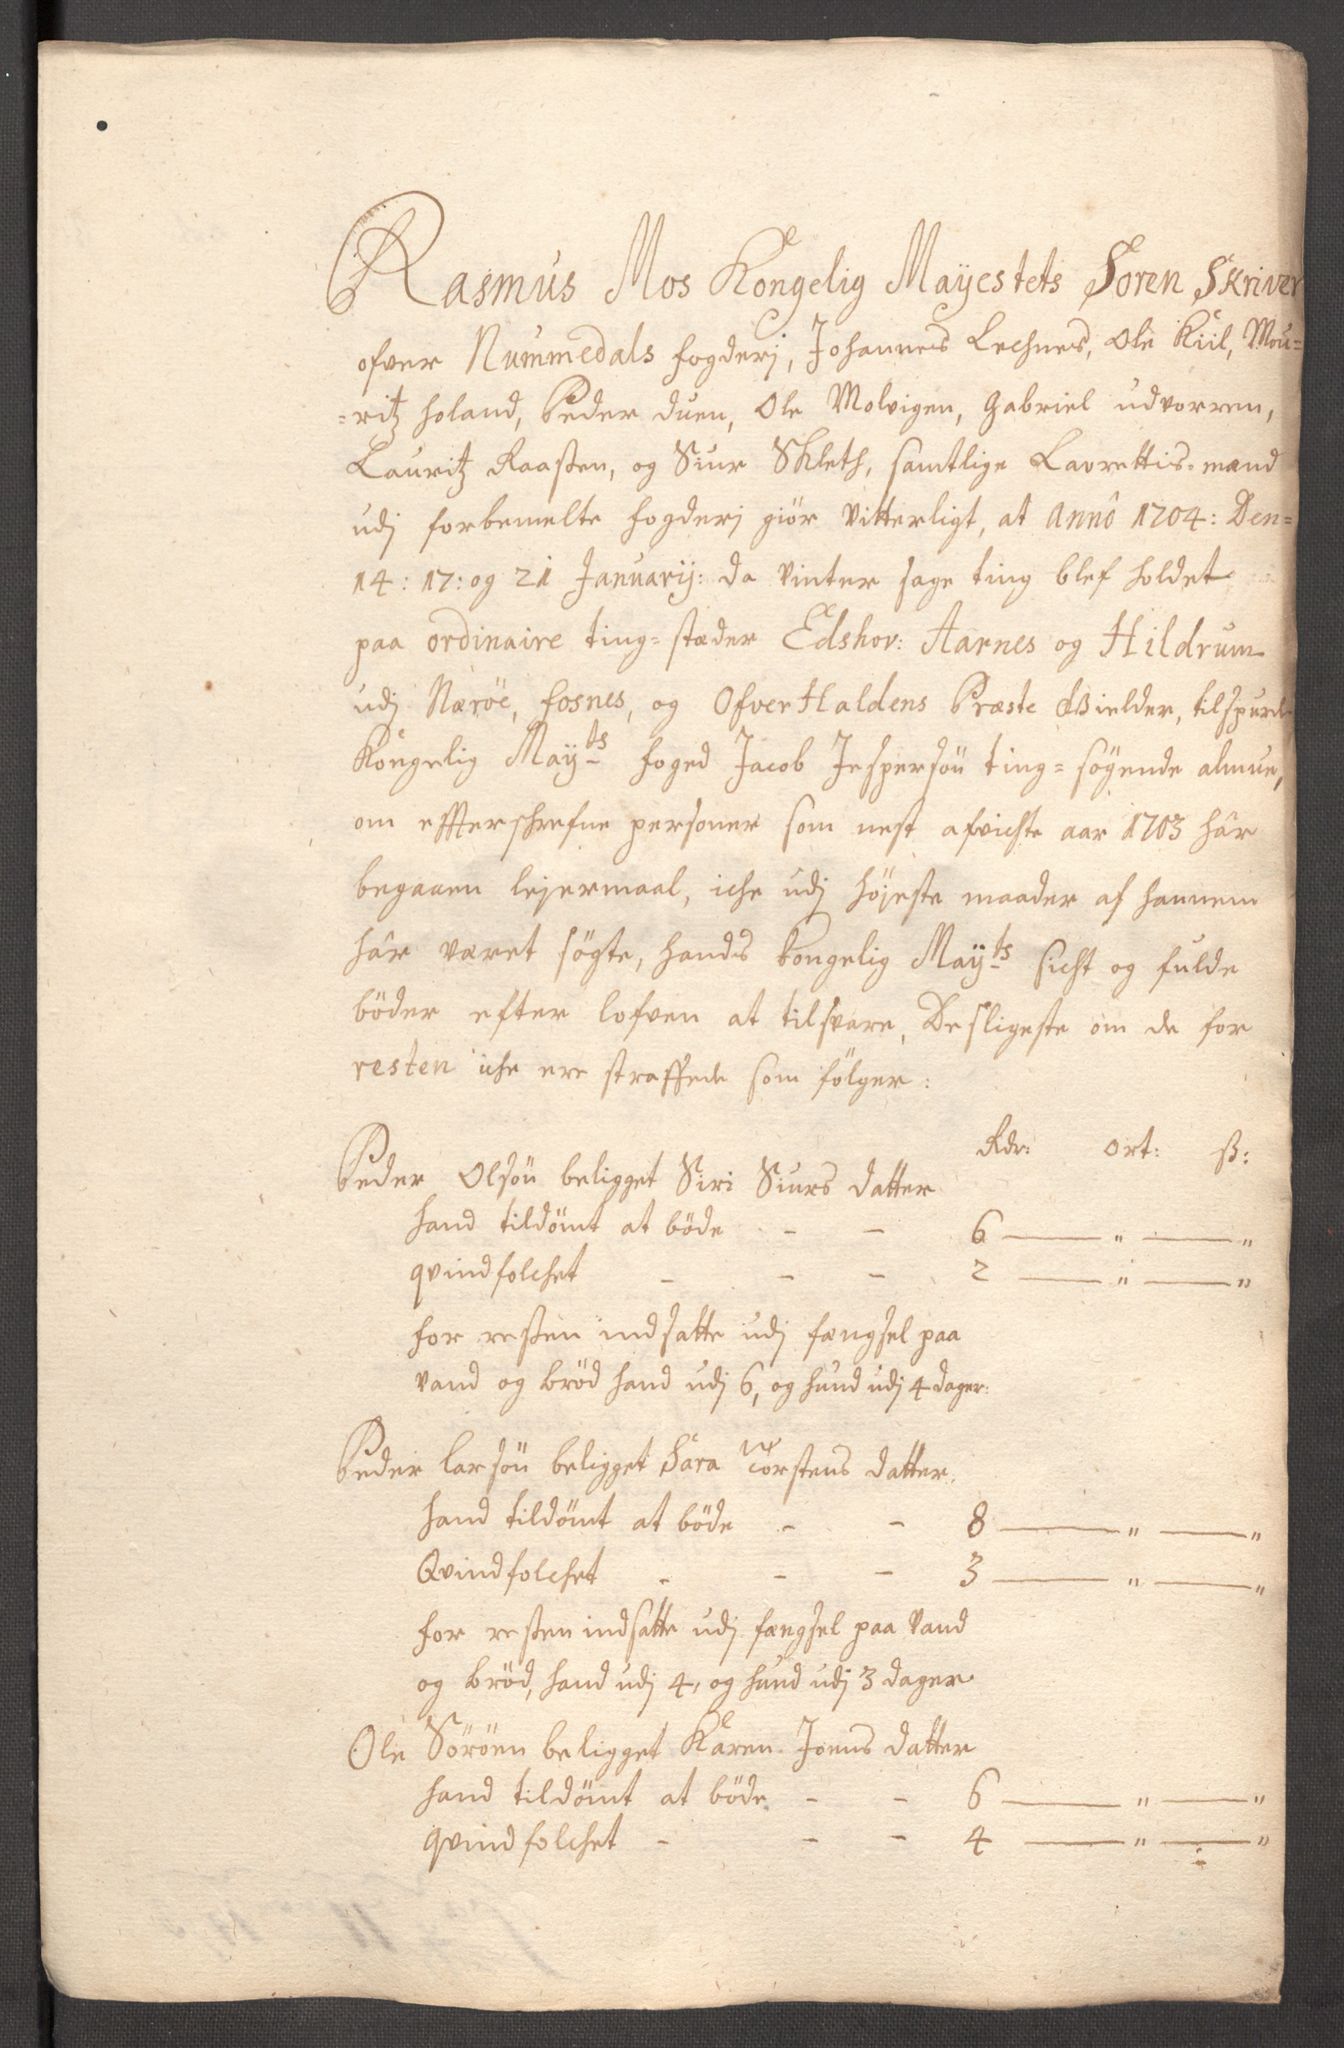 Rasmus Mos Kongelig Mayestets Soren Skriver
ofver Nummedals fogderj, Johannes Lechnes, Ole Kiil, Mou-
=ritz holand, Peder duen, Ole Molvigen, Gabriel udvorren,
Lauritz Raassen, og Siur Skleth, samtlige Lavrettis-mænd
udj forbemelte fogderj giør Vitterligt, at Anno 1704: Den=
14: 17: og 21 Januarij: da Vinter sage ting blef holdet
paa ordinaire ting=stæder Edshov: Aarnes og Hildrum
udj Nærøe, fosnes, og OfverHaldens Præste Gielder, tilspurde
Kongelig Mayts foged Jacob Jespersøn ting=søgende almue,
om effterschrefne personer som nest afvichte aar 1703 hâr
begaaen lejermaal, iche udj højeste maader af hannem
hâr været søgte, hands kongelig Mayts sicht og fulde
bøder efter lofven at tilsvare, Desligeste om de for
resten iche ere straffede som følger:
Rdr: ort: ß:
Peder Olsøn beligget Siri Siurs datter
hand tildømt at bøde - - 6 — " — "
qvindfolchet - - - 2 — " — "
for resten indsatte udj fængsel paa
vand og brød hand udj 6, og hund udj 4 dager:
Peder larsøn beligget Sara Torstens datter.
hand tildømt at bøde - - 8 — " — "
Qvindfolchet - - - 3 — " — "
for resten indsatte udj fængsel paa vand
og brød, hand udj 4, og hund udj 3 dager
Ole Sørøen beligget Karen Joens datter
hand tildømt at bøde - - 6 — " — "
qvindfolchet - - - 4 — " — "